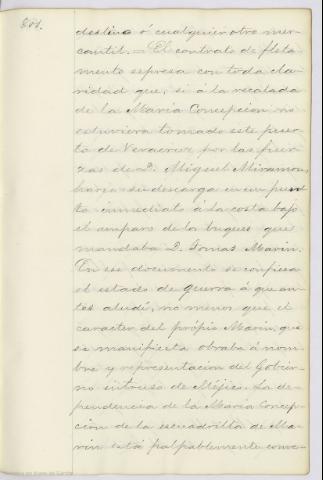 801.
destino ó cualquier otro mer-
cantil. = El contrato de fleta-
mento espresa con toda cla-
ridad que, si á la recalada
de la María Concepcion no
estuviera tomado este puer-
to de Veracruz por las fuer-
zas de D. Miguel Miramon,
haria su descarga en un punto
inmediato á la costa bajo
el amparo de los buques que
mandaba D. Tomas Marin.
En ese documento se confiesa
el estado de guerra á que an-
tes aludí, no menos que el
caracter del própio Marin, que
se manifiesta obraba á nom-
bre y representacion del Gobier-
no intruso de Méjico. La de-
pendencia de la María Concep-
cion de la escuadrilla de Ma-
rin está palpablemente conve-